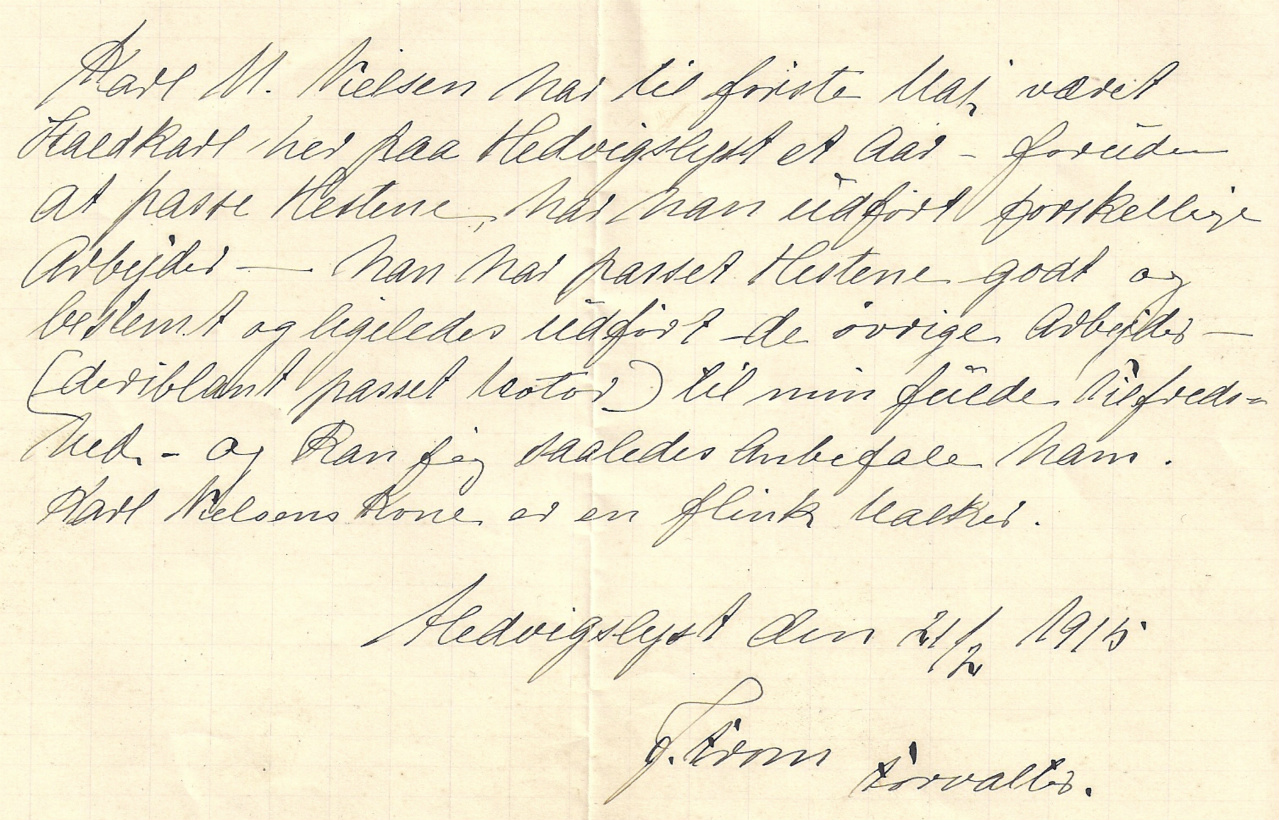 Karl M. Nielsen har til første Maj været
Staldkarl her paa Hedvigslyst et Aar - foruden
at passe Hestene, har han udført forskellige
Arbejder — han har passet Hestene godt og
bestemt og ligeledes udført de øvrige Arbejder —
(deriblant passet Motor) til min fulde Tilfreds=
hed. - og kan jeg saaledes anbefale ham.
Karl Nielsens Kone er en flink Malker.
Hedvigslyst den 21/2 1915
Forvalter.